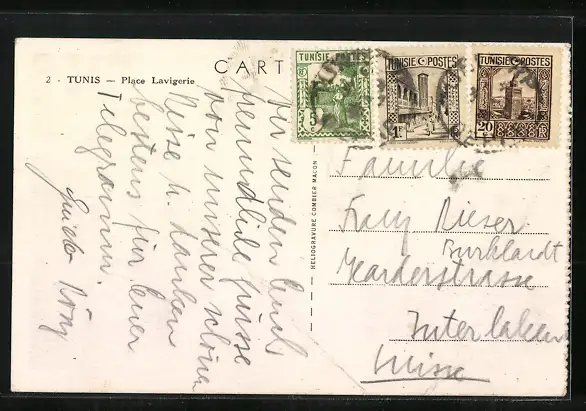 2 - TUNIS — Place Lavigerie
CART
TUNISIE POSTES
5
TUNISIE POSTES
1
TUNISIE POSTES
20
Wir senden Euch
freundliche Grüsse
von unserer schönen
Reise u. danken
bestens für Euer
Telegramm.
Guido
HELIOGRAVURE COMBIER MACON
Familie
Franz Rieser
Burkhardt
Marderstrasse
Interlaken
Suisse